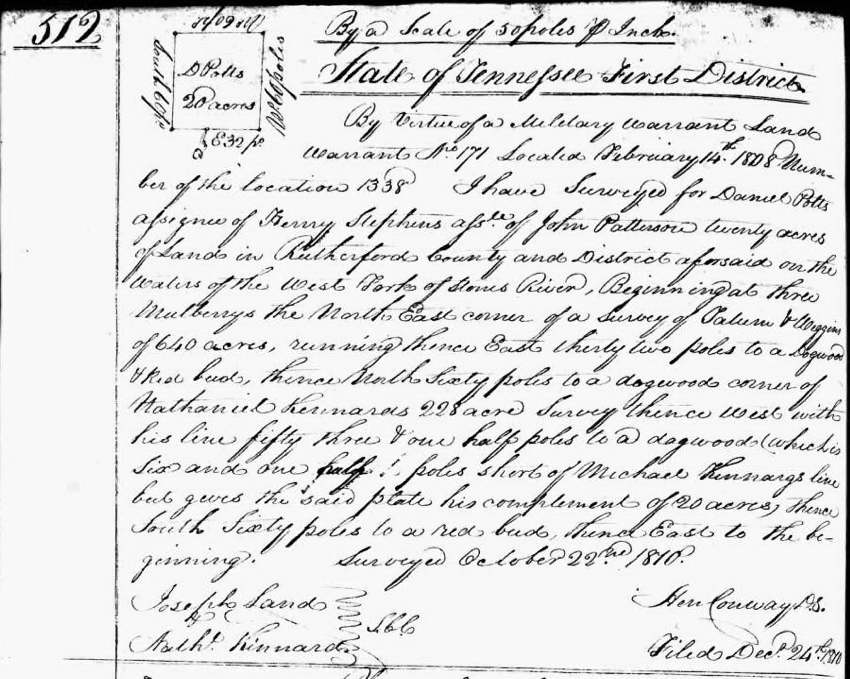 512
By a Scale of 50 poles P Inch.
D Potts
20 acres
South 60 po
E 32 po
State of Tennessee First District
By Virtue of a Military Warrant Land
Warrant No 171 Located February 14th 1808 Num-
ber of the location 1338 I have Surveyed for Daniel Potts
assignee of Henry Stephens asse. of John Patterson twenty acres
of Land in Rutherford County and District aforsaid on the
waters of the West Fork of Stones River, Beginning at three
Mulberrys the North East corner of a Survey of Tatum & Wiggins
of 640 acres, running thence East thirty two poles to a Dogwood
& Red bud, thence North Sixty poles to a dogwood corner of
Nathaniel Kennards 228 acre Survey thence West with
his line fifty three & one half poles to a dogwood (which is
Six and one half poles short of Michael Kennargs line
but gives the said plate his complement of 20 acres, thence
South Sixty poles to a red bud, thence East to the be-
ginning. Surveyed October 22nd 1810.
Joseph Land
& Nathl. Kinnard
S.C.C
Hen Conway D.S.
Filed Decr. 24th 1810